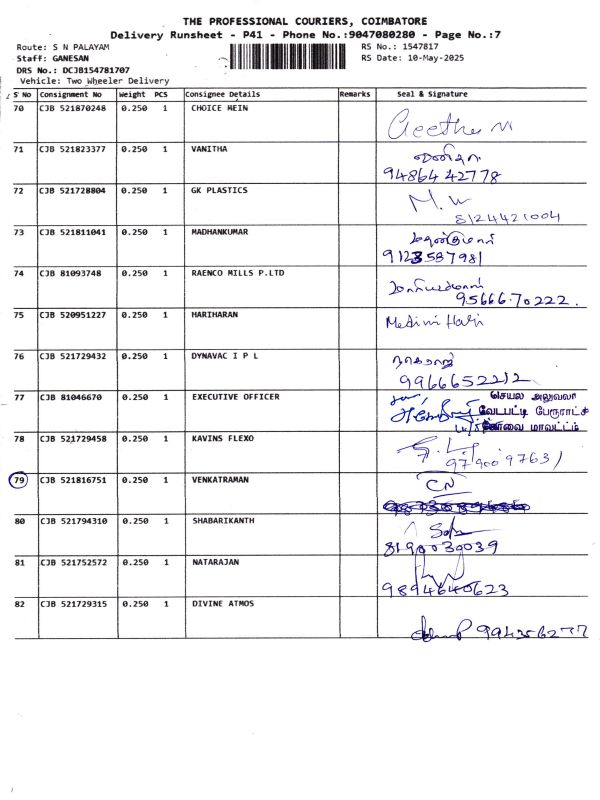 THE PROFESSIONAL COURIERS, COIMBATORE
Delivery Runsheet - P41 - Phone No.:9047080280 - Page No.:7
Route: S N PALAYAM RS No.: 1547817
Staff: GANESAN RS Date: 10-May-2025
DRS No.: DCJB154781707
Vehicle: Two Wheeler Delivery
S No Consignment No Weight PCS Consignee Details Remarks Seal & Signature
70 CJB 521870248 0.250 1 CHOICE MEIN
Geetha M
71 CJB 521823377 0.250 1 VANITHA வனிதா
94864 42778
72 CJB 521728804 0.250 1 GK PLASTICS M.
8124421004
73 CJB 521811041 0.250 1 MADHANKUMAR
9123587981
74 CJB 81093748 0.250 1 RAENCO MILLS P.LTD
95666.70222.
75 CJB 520951227 0.250 1 HARIHARAN Medini Hari
76 CJB 521729432 0.250 1 DYNAVAC I P L நாகராஜ்
9966652212
77 CJB 81046670 0.250 1 EXECUTIVE OFFICER செயல் அலுவலர்
வேடபட்டி பேரூராட்சி
கோவை மாவட்டம்
78 CJB 521729458 0.250 1 KAVINS FLEXO
9790097631
79 CJB 521816751 0.250 1 VENKATRAMAN CN
80 CJB 521794310 0.250 1 SHABARIKANTH
8190030039
81 CJB 521752572 0.250 1 NATARAJAN
9894640623
82 CJB 521729315 0.250 1 DIVINE ATMOS
994356277